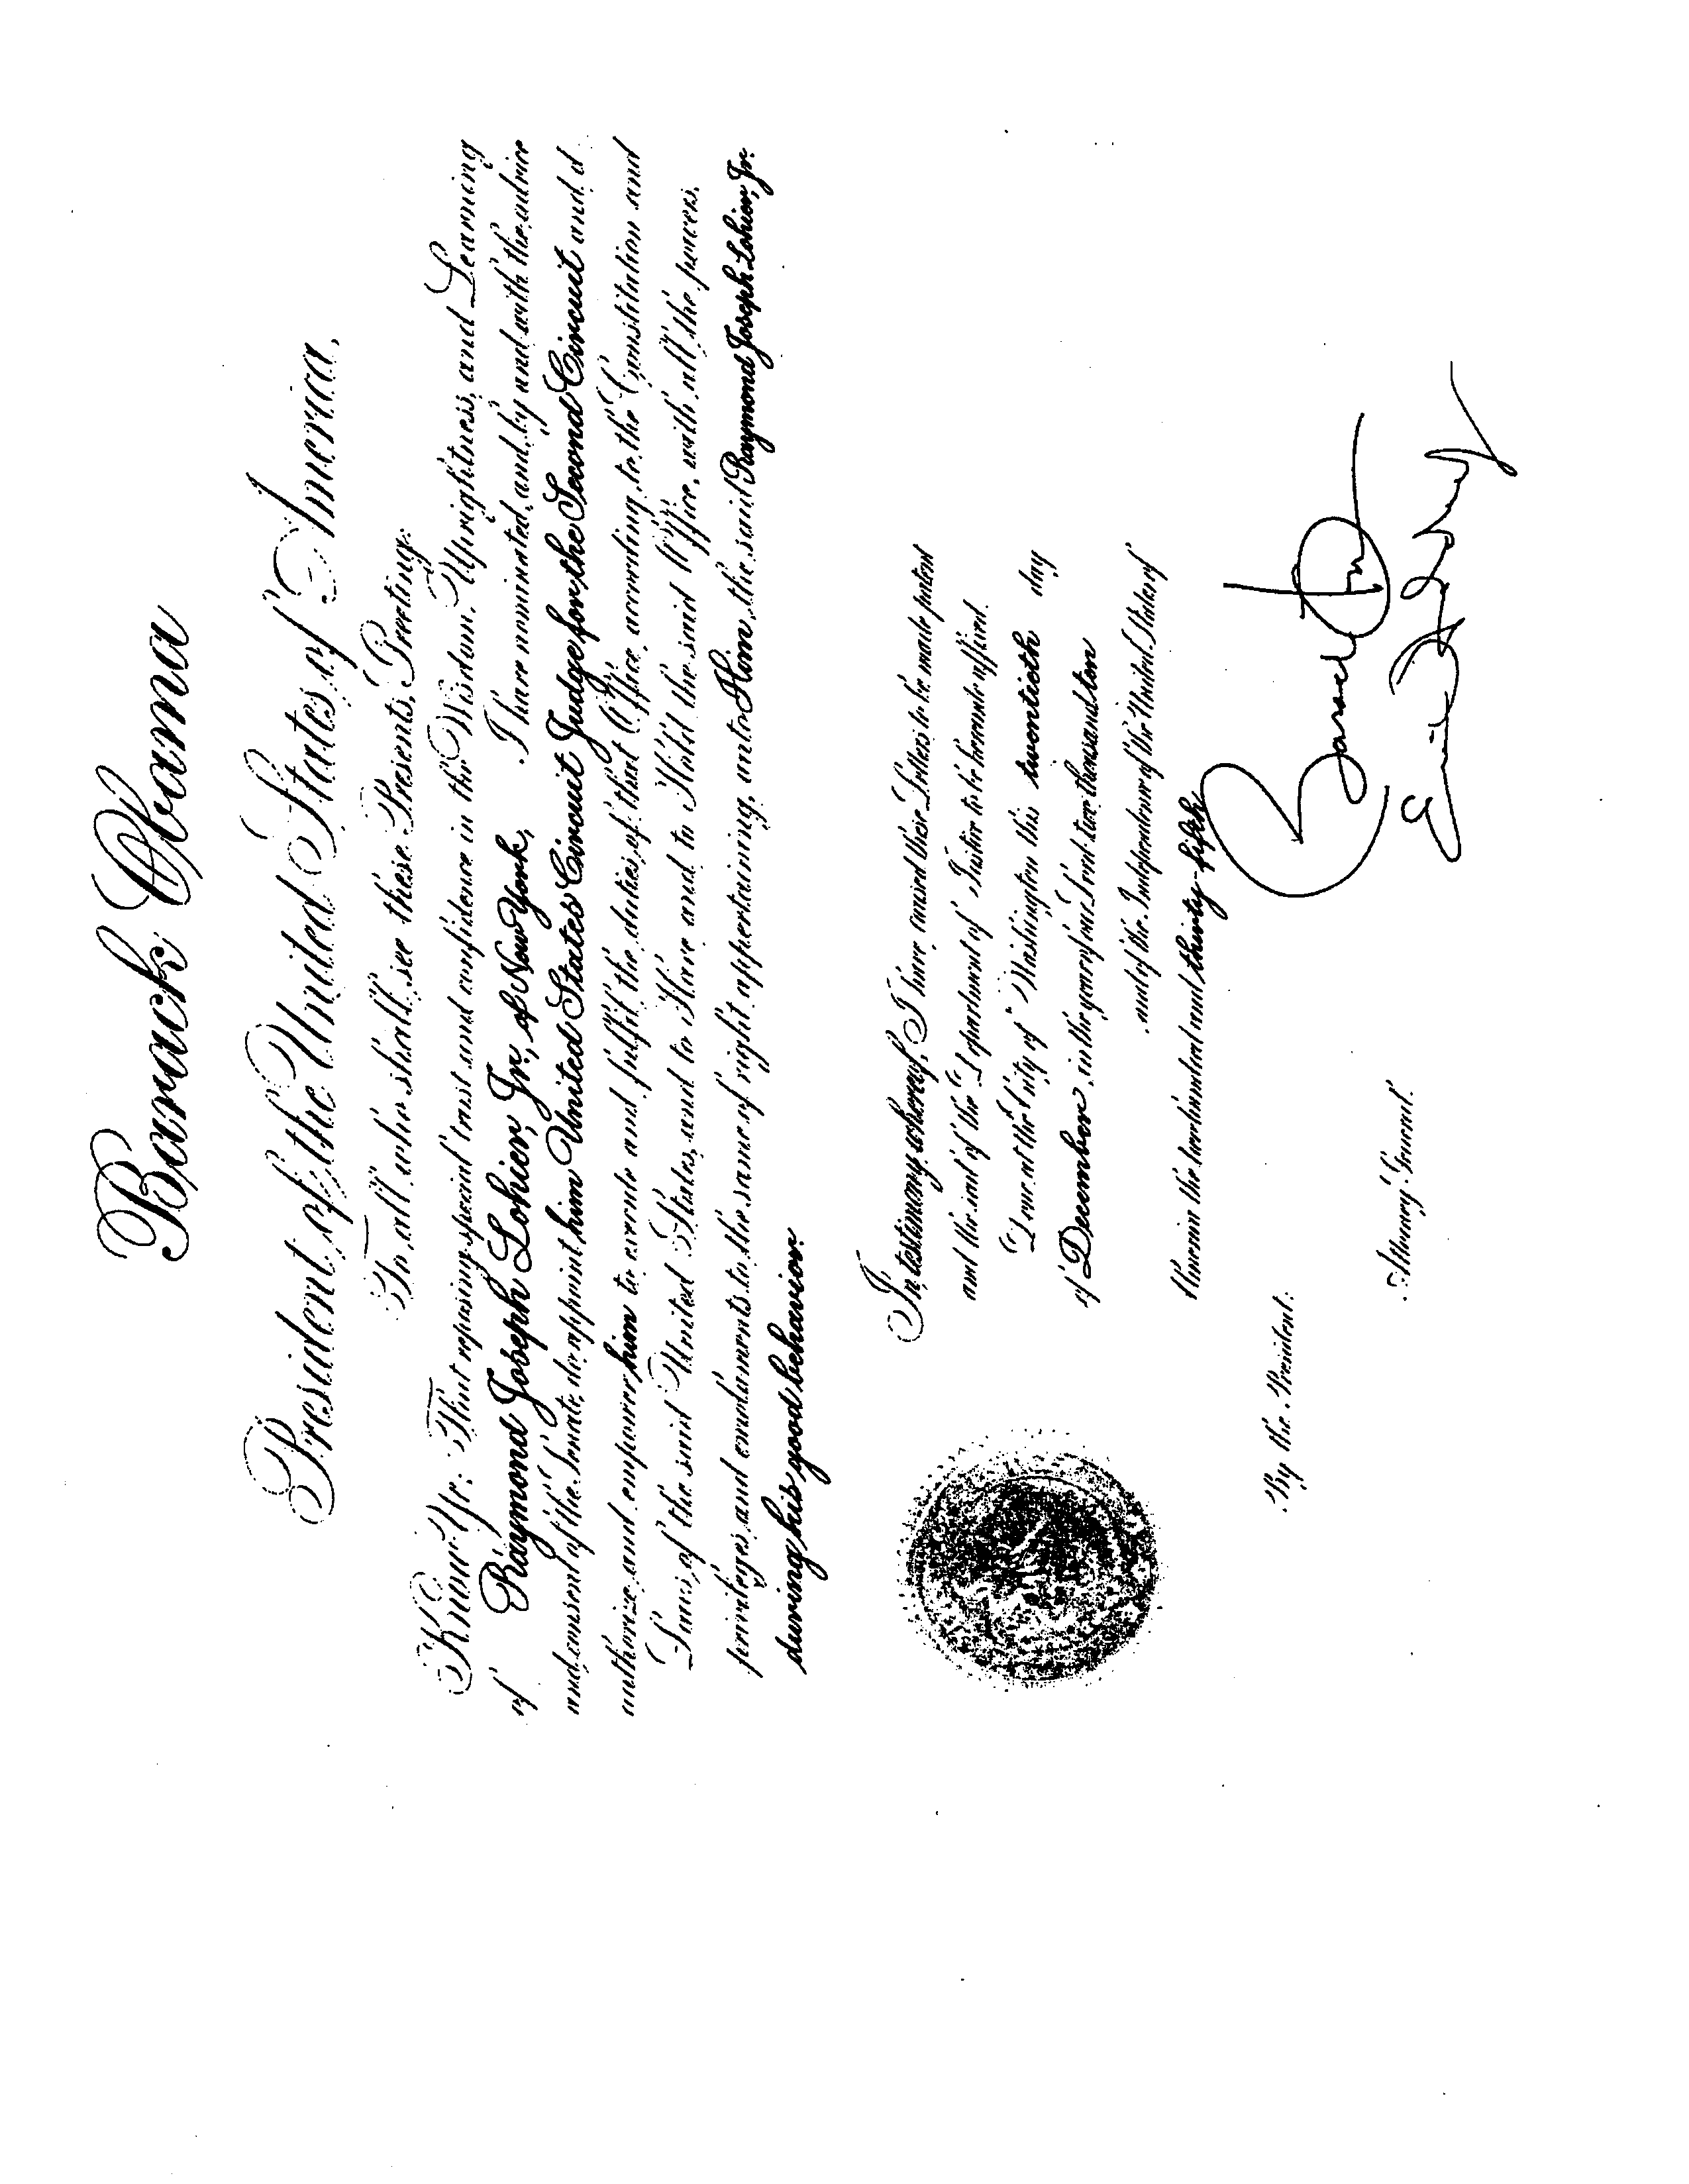 Barack Obama
President of the United States of America,
To all who shall see these Presents, Greeting:
Know Ye: That reposing special trust and confidence in the Wisdom, Uprightness, and Learning
of Raymond Joseph Lohier, Jr., of New York, I have nominated, and, by and with the advice
and consent of the Senate, do appoint him United States Circuit Judge for the Second Circuit and d
authorize and empower him to execute and fulfil the duties of that Office, according to the Constitution and
Laws of the said United States, and to Have and to Hold the said Office, with all the powers,
privileges and emoluments to the same of right appertaining, unto Him, the said Raymond Joseph Lohier, Jr.
during his good behavior.
In testimony whereof, I have caused these Letters to be made patent
and the seal of the Department of Justice to be hereunto affixed.
Done at the City of Washington this twentieth day
of December, in the year of our Lord two thousand ten
and of the Independence of the United States of
America the two hundred and thirty-fifth.
By the President:
Barack Obama
Attorney General.